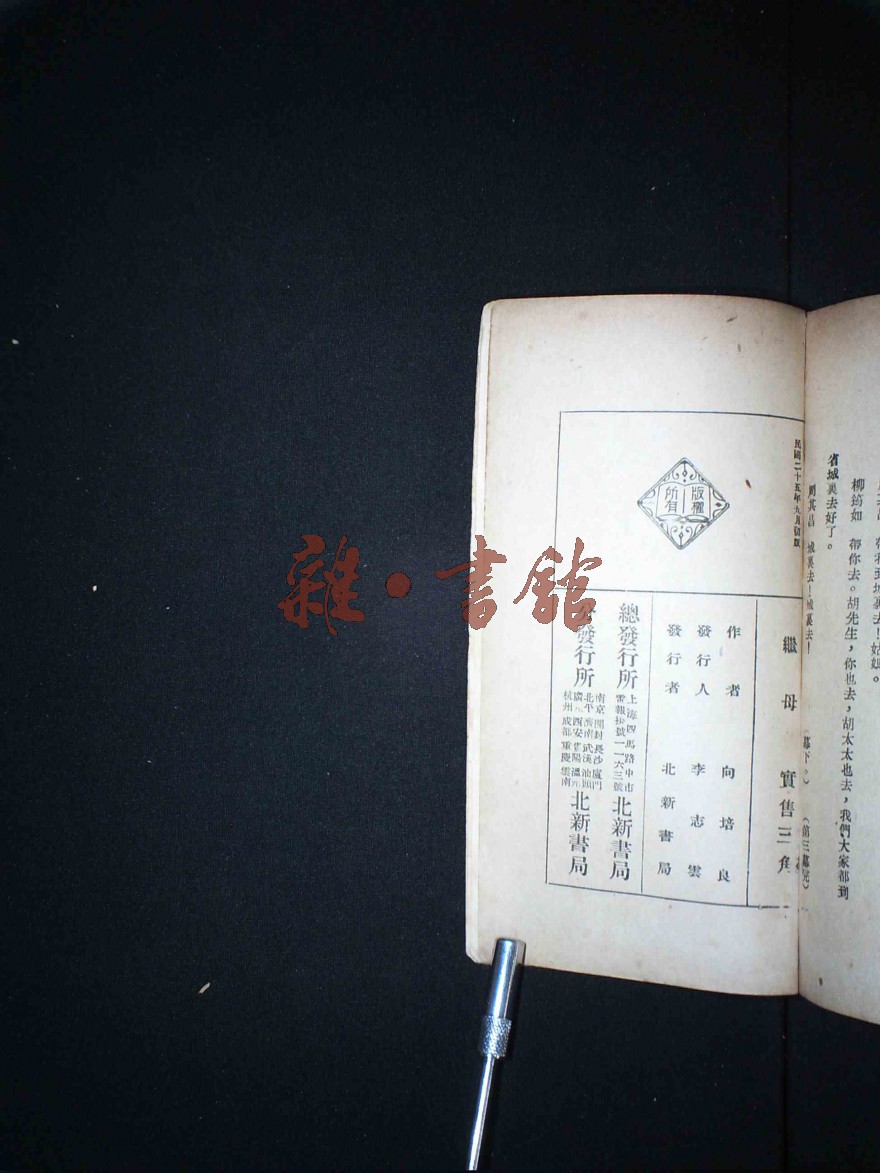 帶我到城裏去！姑姐。
柳筠如　帶你去。胡先生，你也去，胡太太也去，我們大家都到
省城裏去好了。
周其昌　城裏去！城裏去！
（幕下。）（第三幕完）
民國二十五年九月初版
版權
所有
繼母　實售三角
作者　向培良
發行人　李志雲
發行者　北新書局
總發行所　上海四馬路中市
電報掛號一一六三號　北新書局
發行所　南京開封長沙廈門
北平濟南武漢汕頭
西安
杭州成都重慶雲南　北新書局
雜·書館